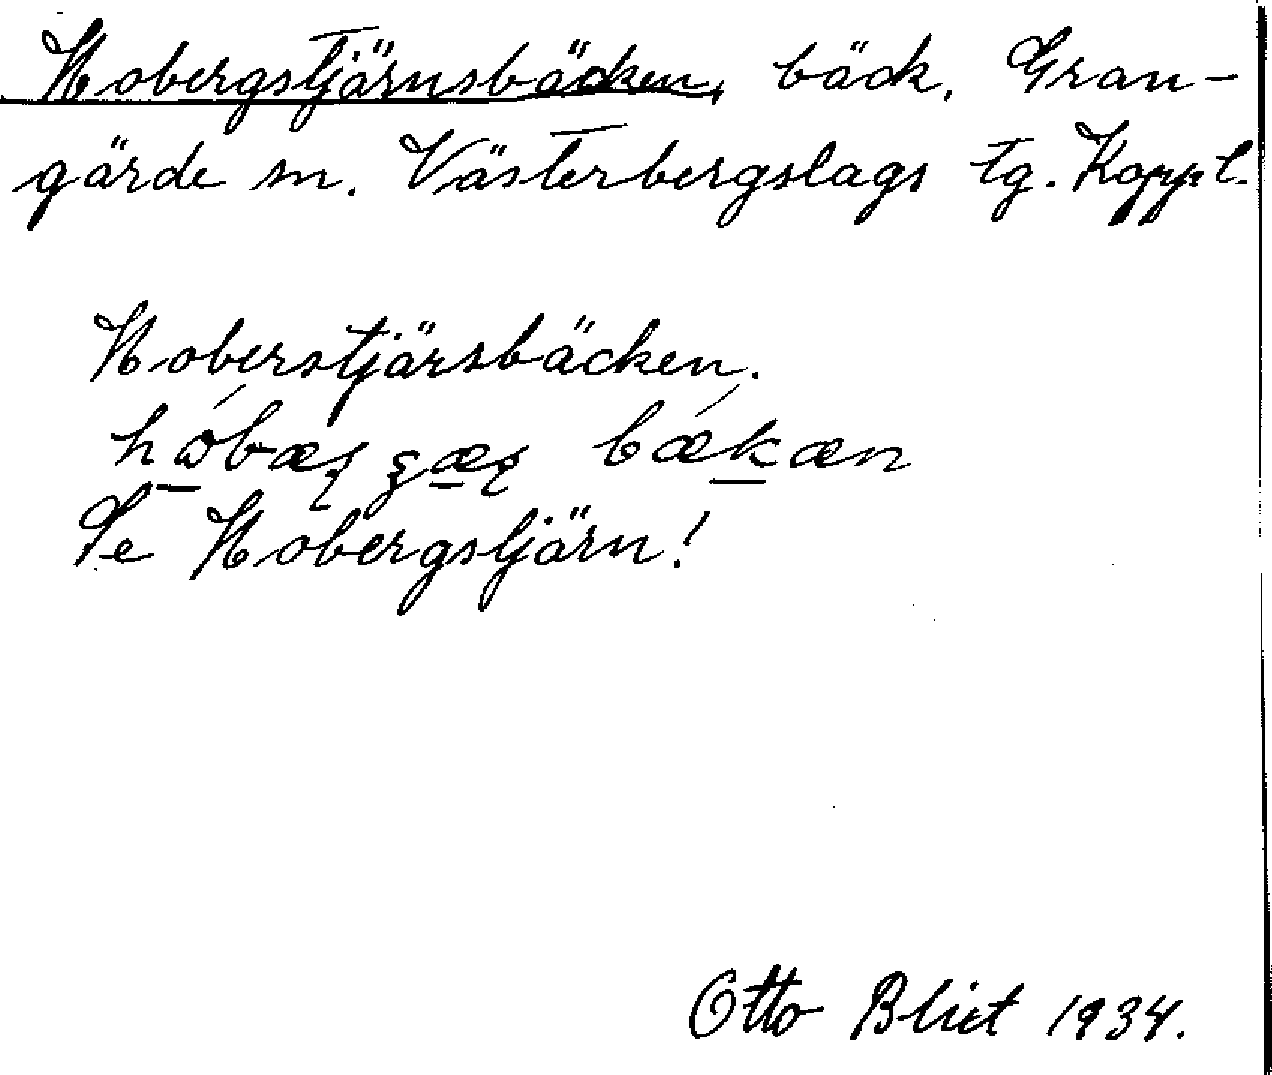 Hobergstjärnsbäcken, bäck, Gran-
gärde sn. Västerbergslags tg. Koppl.
Hoberstjärsbäcken.
Se Hobergstjärn!
Otto Blixt 1934.